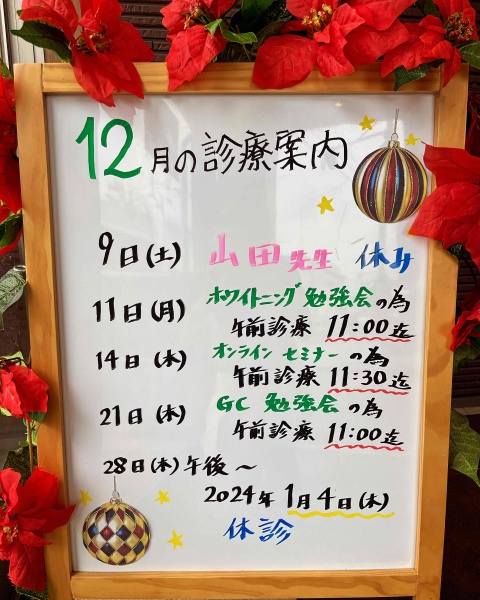 12月の診療案内
9日(土) 山田先生 休み
11日(月) ホワイトニング 勉強会の為
午前診療 11:00迄
14日(木) オンラインセミナーの為
午前診療 11:30迄
21日(木) GC 勉強会の為
午前診療 11:00迄
28日(木)午後~
2024年1月4日(木)
休診